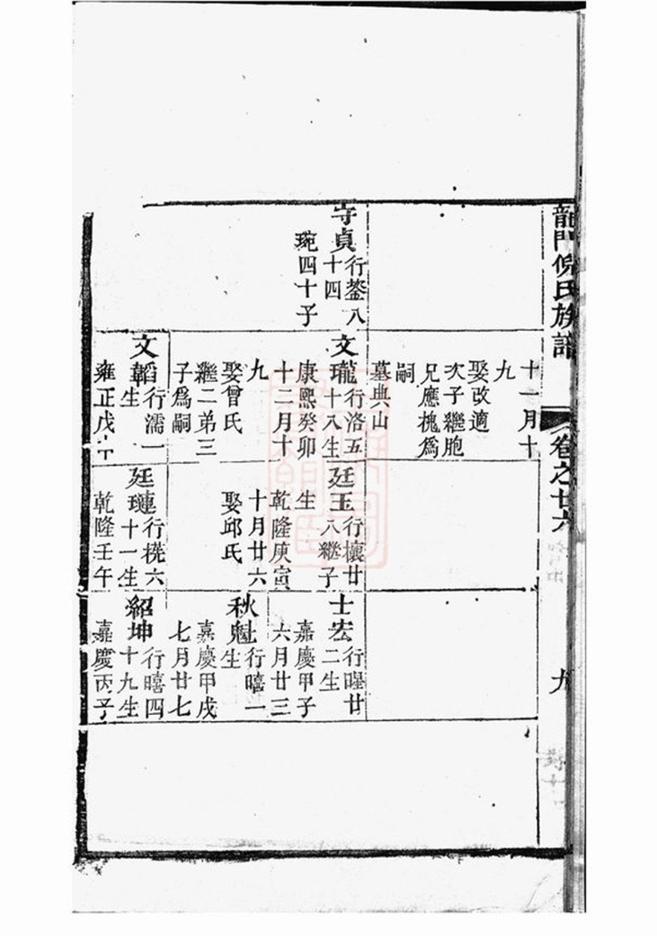 龍門倪氏族譜
卷之廿六
九
十一月十
九
娶改適
次子繼胞
兄應槐為
嗣
墓典山
守貞行蓥八
十四
琬四十子
文瓏行洛五
十八生
康熙癸卯
十二月十
九
娶曾氏
繼二弟三
子為嗣
文韜行濡一
生
雍正戊
廷玉行懷廿
八繼子
生
乾隆庚寅
十月廿六
娶邱氏
廷璉行
六
十一生
乾隆壬午
士宏行曜廿
二生
嘉慶甲子
六月廿三
秋魁行暿一
生
嘉慶甲戌
七月廿七
紹坤行暿四
十九生
嘉慶丙子